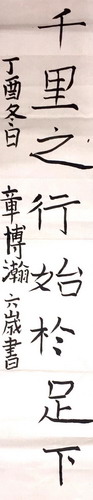 千里之行始於足下
丁酉冬日 章博瀚 六歲書